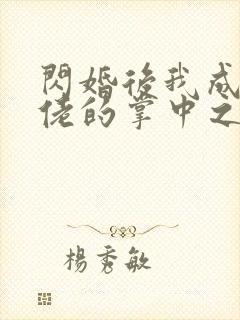 閃婚後我成
佬的掌中之
楊秀敏